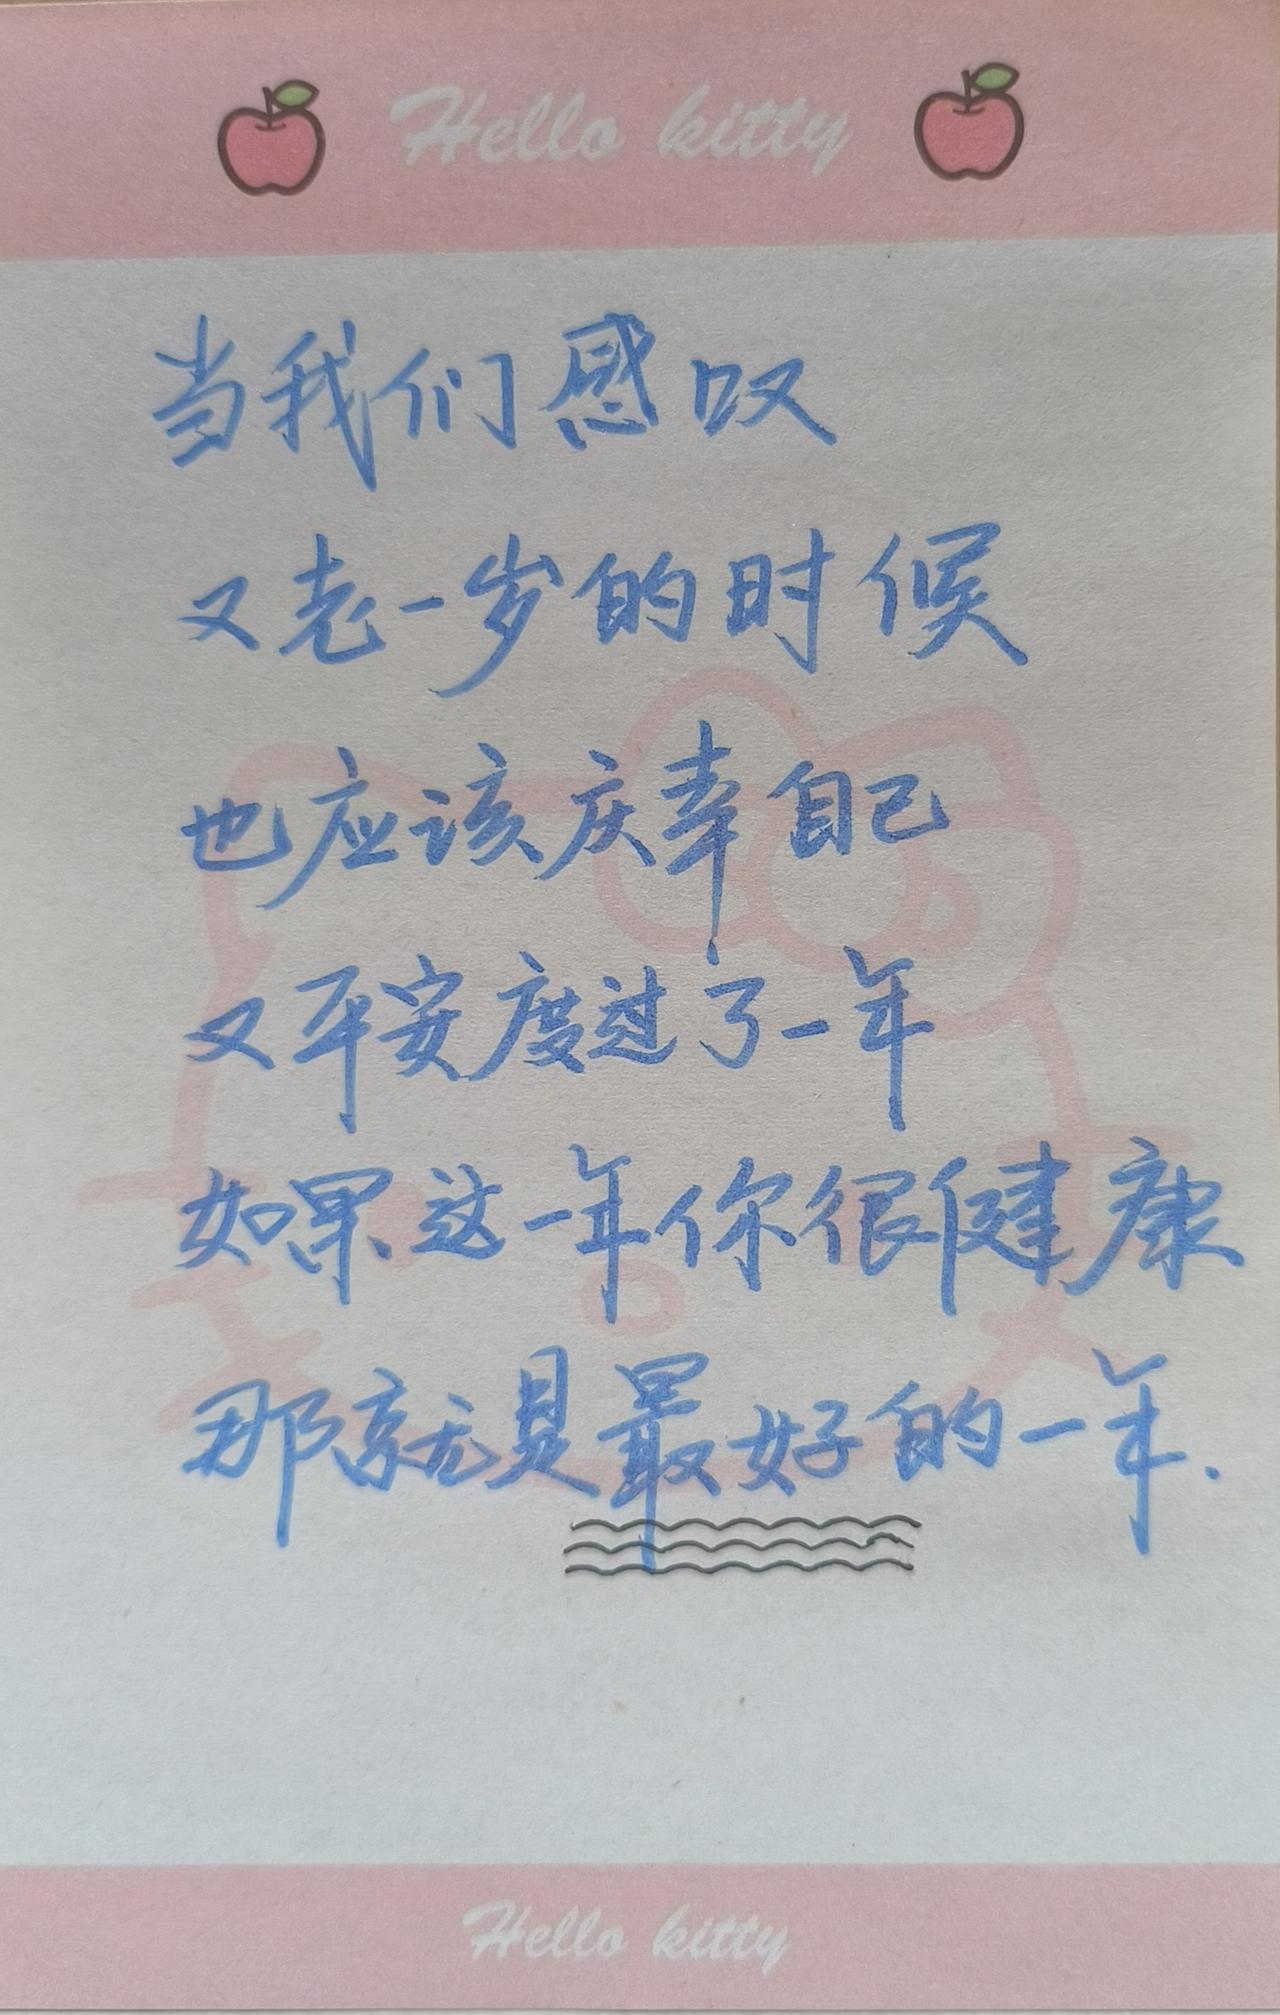 Hello kitty
当我们感叹
又老一岁的时候
也应该庆幸自己
又平安度过了一年
如果这一年你很健康
那就是最好的一年.
Hello kitty